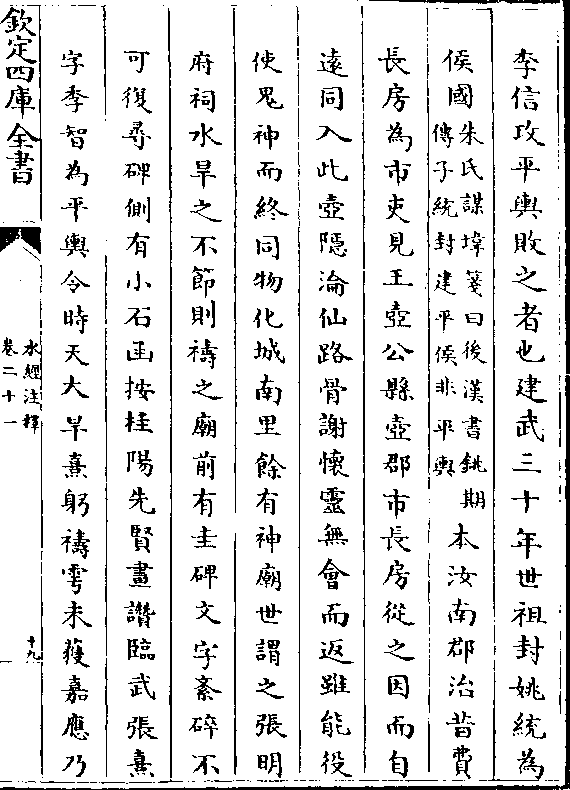 李信攻平輿敗之者也建武三十年世祖封姚統為
侯國朱氏謀㙔箋曰後漢書銚期
傳子統封建平侯非平輿本汝南郡治昔費
長房為市吏見王壺公縣壺郡市長房從之因而自
遠同入此壺隱淪仙路骨謝懷靈無會而返雖能役
使鬼神而終同物化城南里餘有神廟世謂之張明
府祠水旱之不節則禱之廟前有圭碑文字紊碎不
可復尋碑側有小石函按桂陽先賢畫讚臨武張熹
字季智為平輿令時天大旱熹躬禱雩未獲嘉應乃
欽定四庫全書
水經注釋
卷二十一
十九